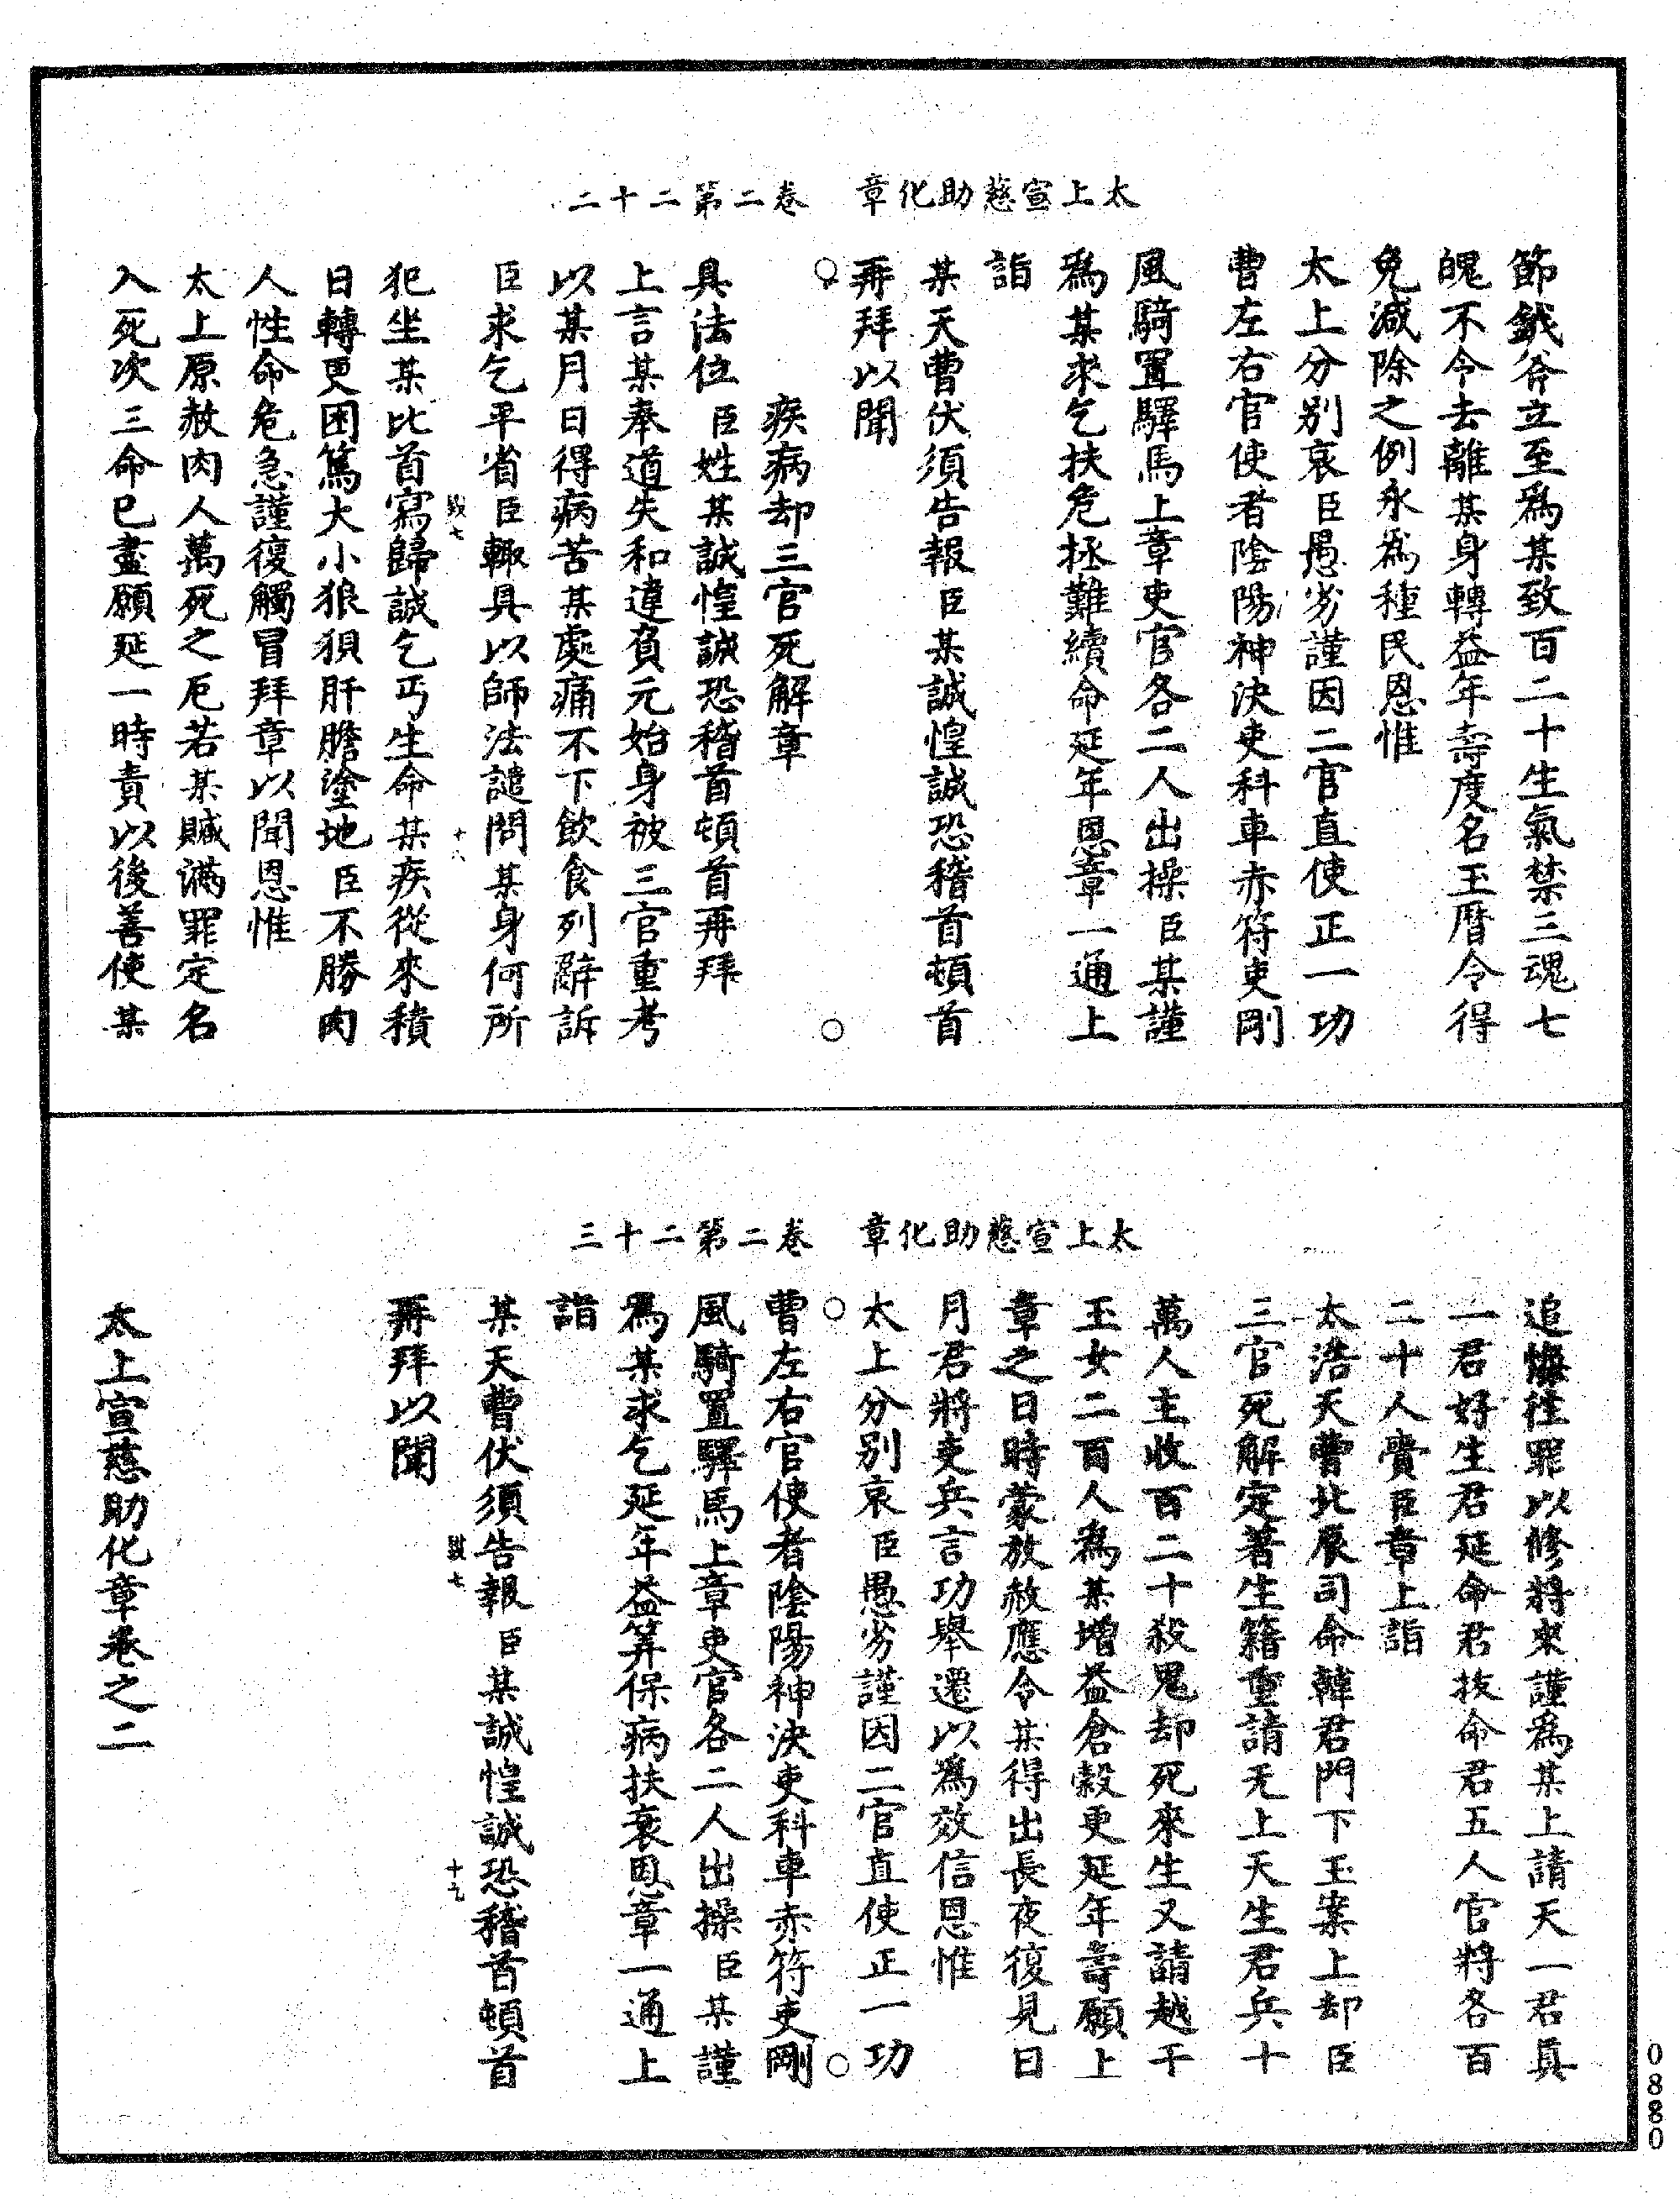 太上宣慈助化章　卷二第二十二
節鉞斧立至爲某致百二十生氣禁三魂七
魄不令去離某身轉益年壽度名玉曆令得
免減除之例永爲種民恩惟
太上分別哀臣愚劣謹因二官直使正一功
曹左右官使者陰陽神決吏科車赤符吏剛
風騎置驛馬上章吏官各二人出操臣某謹
爲某求乞扶危拯難續命延年恩章一通上
詣
某天曹伏須告報臣某誠惶誠恐稽首頓首
再拜以聞
疾病却三官死解章
具法位臣姓某誠惶誠恐稽首頓首再拜
上言某奉道失和違負元始身被三官重考
以某月日得病苦某處痛不下飲食列辭訴
臣求乞平省臣輙具以師法譴問某身何所
犯坐某比首寫歸誠乞丐生命某疾從來積
日轉更困篤大小狼狽肝膽塗地臣不勝肉
人性命危急謹復觸冒拜章以聞恩惟
太上原赦肉人萬死之厄若某贓滿罪定名
入死次三命已盡願延一時責以後善使某
七
十八
太上宣慈助化章　卷二第二十三
追悔往罪以修將來謹爲某上請天一君眞
一君好生君延命君拔命君五人官將各百
二十人賫臣章上詣
太浩天曹北辰司命韓君門下玉案上却臣
三官死解定著生籍重請无上天生君兵十
萬人主收百二十殺鬼却死來生又請越千
玉女二百人爲某增益倉穀更延年壽願上
章之日時蒙放赦應令某得出長夜復見日
月君將吏兵言功舉遷以爲效信恩惟
太上分別哀臣愚劣謹因二官直使正一功
曹左右官使者陰陽神決吏科車赤符吏剛
風騎置驛馬上章吏官各二人出操臣某謹
爲某求乞延年益筭保病扶衰恩章一通上
詣
某天曹伏須告報臣某誠惶誠恐稽首頓首
七
十九
再拜以聞
太上宣慈助化章卷之二
0880